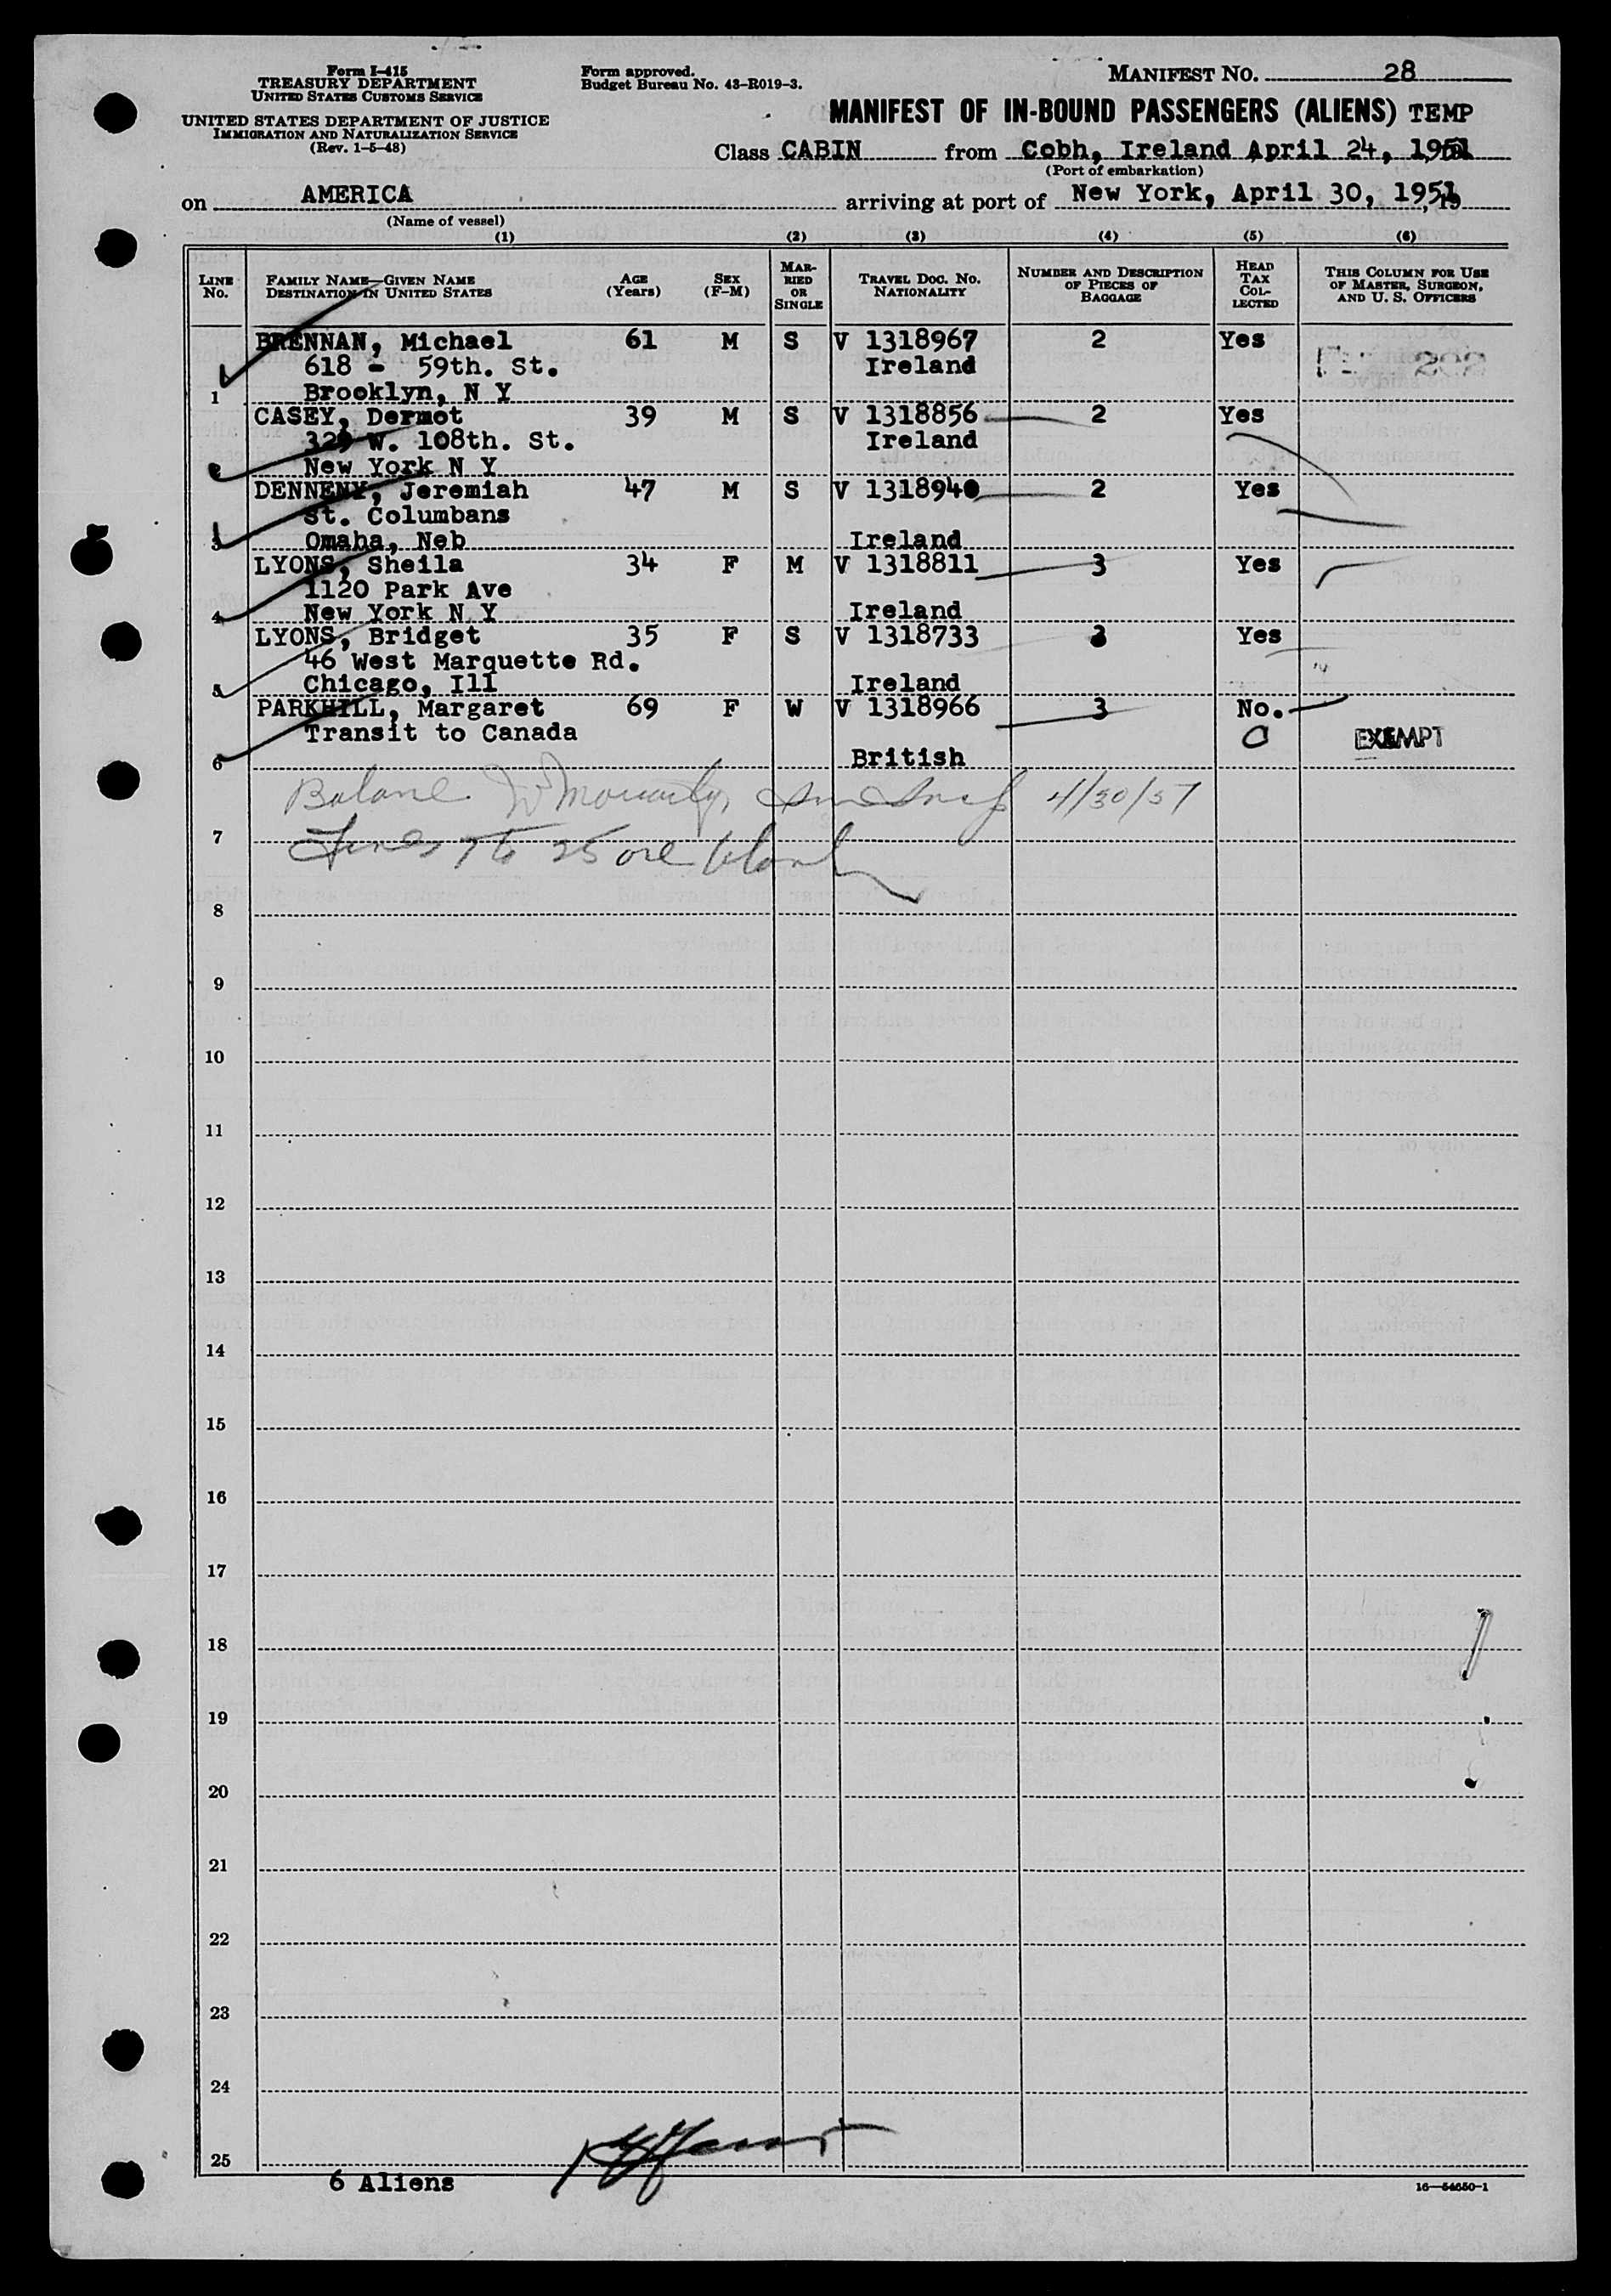 Form I-415
TREASURY DEPARTMENT
UNITED STATES CUSTOMS SERVICE
UNITED STATES DEPARTMENT OF JUSTICE
IMMIGRATION AND NATURALIZATION SERVICE
(Rev. 1-5-48)
Form approved.
Budget Bureau No. 43-R019-3.
MANIFEST NO. 28
MANIFEST OF IN-BOUND PASSENGERS (ALIENS) TEMP
Class CABIN from Cobh, Ireland April 24, 1951
(Port of embarkation)
on AMERICA arriving at port of New York, April 30, 1951
(Name of vessel)
(1) (2) (3) (4) (5) (6)
LINE No. FAMILY NAME—GIVEN NAME DESTINATION IN UNITED STATES AGE (Years) SEX (F-M) MARRIED OR SINGLE TRAVEL DOC. NO. NATIONALITY NUMBER AND DESCRIPTION OF PIECES OF BAGGAGE HEAD TAX COLLECTED THIS COLUMN FOR USE OF MASTER, SURGEON, AND U. S. OFFICERS
BRENNAN, Michael 61 M S V 1318967 2 Yes
618 - 59th. St. Ireland
1 Brooklyn, N Y
CASEY, Dermot 39 M S V 1318856 2 Yes
329 W. 108th. St. Ireland
2 New York N Y
DENNENY, Jeremiah 47 M S V 1318940 2 Yes
St. Columbans
3 Omaha, Neb Ireland
LYONS, Sheila 34 F M V 1318811 3 Yes
1120 Park Ave
4 New York N Y Ireland
LYONS, Bridget 35 F S V 1318733 3 Yes
46 West Marquette Rd.
5 Chicago, Ill Ireland
PARKHILL, Margaret 69 F W V 1318966 3 No.
Transit to Canada 0 EXEMPT
6 British
4/30/51
7 Lines 7 to 25 are blank
8
9
10
11
12
13
14
15
16
17
18
19
20
21
22
23
24
25
6 Aliens
16—54650-1